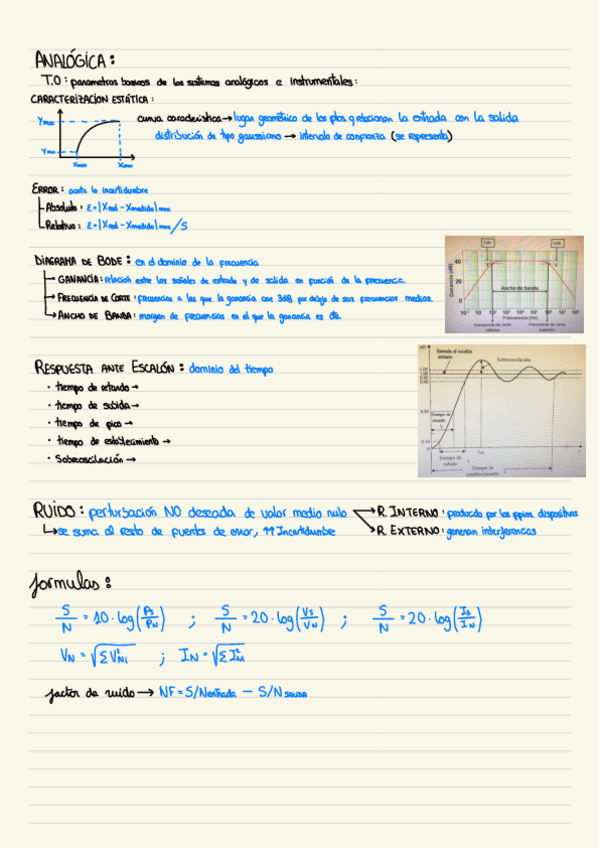 ANALÓGICA:
T.0: parametros basicos de los sistemas analógicos e instrumentales:
CARACTERIZACIÓN ESTÁTICA:
Ymax
Ymin
Xmin Xmax
curva caracteristica → lugar geométrico de los ptos q relacionan la entrada con la salida
distribución de tipo gaussiano → intervalo de confianza (se representa)
ERROR: acota la incertidumbre
Absoluto: ε=|Xreal - Xmedida|max
Relativo: ε=|Xreal - Xmedida|max/S
DIAGRAMA DE BODE: en el dominio de la frecuencia
GANANCIA: relación entre las señales de entrada y de salida en función de la frecuencia.
FRECUENCIA DE CORTE: frecuencias a las que la ganancia cae 3dB por debajo de sus frecuencias medias.
ANCHO DE BANDA: margen de frecuencias en el que la ganancia es cte.
Ganancia (dB)
40
20
0
Ancho de banda
Frecuencia (Hz)
Frecuencia de corte inferior
Frecuencia de corte superior
RESPUESTA ANTE ESCALÓN: dominio del tiempo
· tiempo de retardo →
· tiempo de subida →
· tiempo de pico →
· tiempo de establecimiento →
· Sobreoscilación →
Entrada al escalón unitario
Sobreoscilación
Tiempo de retardo
Tiempo de subida
Tiempo de establecimiento
RUIDO: perturbación NO deseada de valor medio nulo
→ R. INTERNO: producido por los ppios dispositivos
→ R. EXTERNO: generan interferencias
↳ se suma al resto de fuentes de error, ↑↑ Incertidumbre
formulas:
S/N = 10·log(PS/PN) ; S/N = 20·log(VS/VN) ; S/N = 20·log(IS/IN)
VN = √ΣV²Ni ; IN = √ΣI²Ni
factor de ruido → NF = S/N entrada - S/N SALIDA